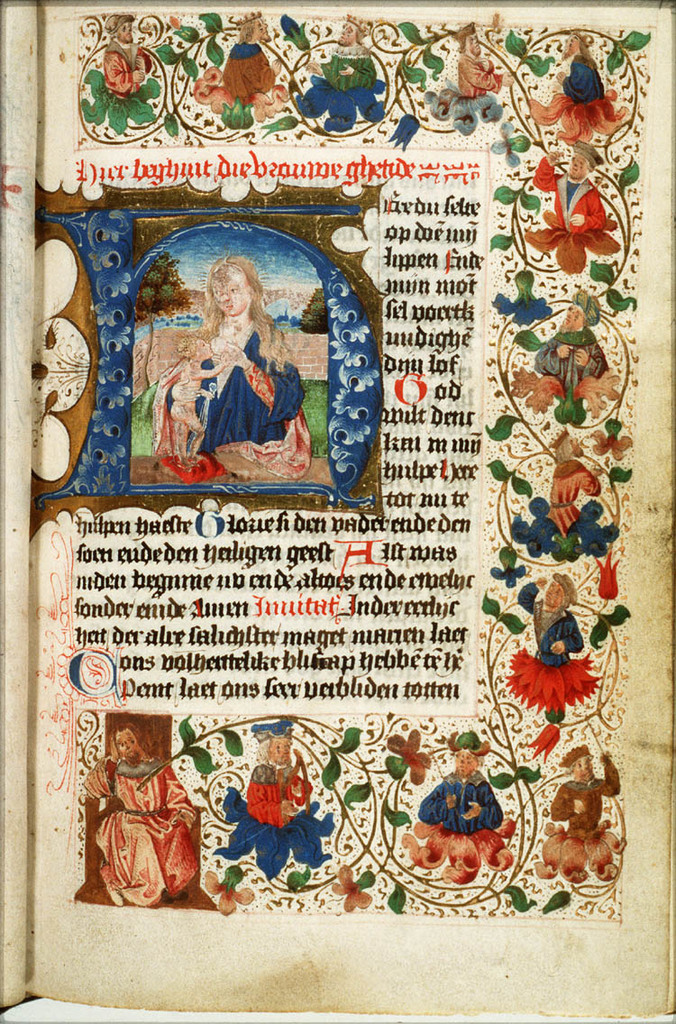 Hier beghint die vrouwe ghetide
Here du selte
op doē mȳ
lippen Ende
mijn mōt
sel voertk
undighē
dijn lof
God
wilt denc
ken in mȳ
hulpe Here
tot mi te
hulpen haeste Glorie si den vader ende den
soen ende den heiligen geest Alst was
inden beginne nv ende altoes ende ewelyc
sonder einde Amen Jnuitat Jnder eerlyc
heit der alre salichster maget marien laet
ons volherttelike blijscap hebbē
Coemt laet ons seer verbliden totten